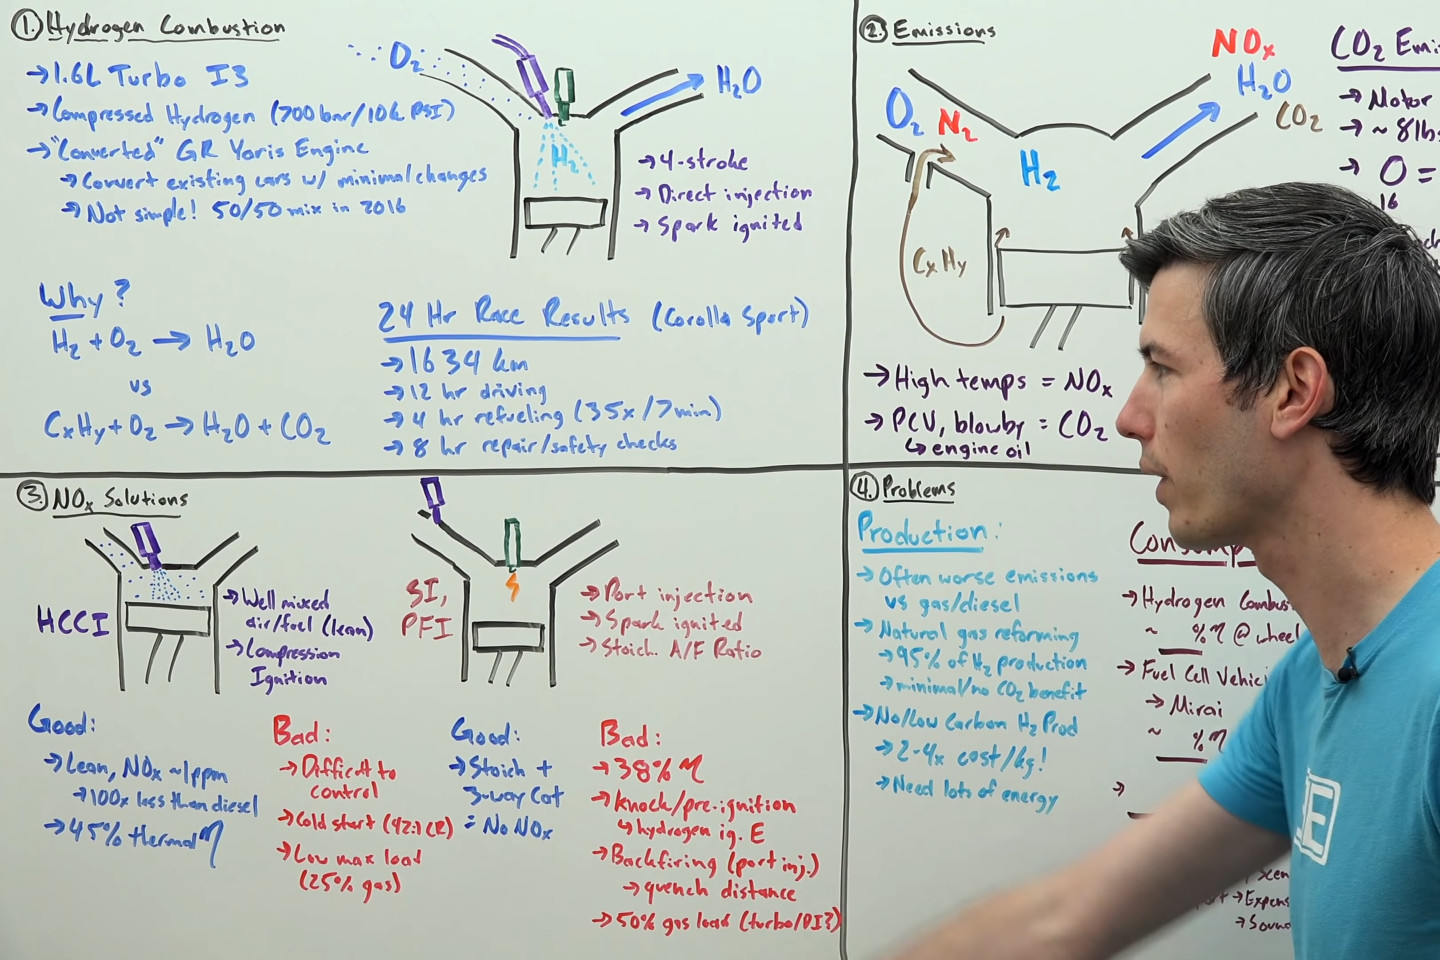 1. Hydrogen Combustion
→1.6L Turbo I3
→Compressed Hydrogen (700 bar/10k PSI)
→"Converted" GR Yaris Engine
→Convert existing cars w/ minimal changes
→Not simple! 50/50 mix in 2016
O2
H2
H2O
→4-stroke
→Direct injection
→Spark ignited
Why?
H2 + O2 → H2O
vs
CxHy + O2 → H2O + CO2
24 Hr Race Results (Corolla Sport)
→1634 km
→12 hr driving
→4 hr refueling (35x/7min)
→8 hr repair/safety checks
2. Emissions
O2 N2
H2
NOx
H2O
CO2
CxHy
→High temps = NOx
→PCV, blowby = CO2
↳engine oil
CO2 Emi
→Motor
→~8lbs
→O =
16
3. NOx Solutions
HCCI
→Well mixed
air/fuel (lean)
→Compression
Ignition
Good:
→Lean, NOx ~1ppm
→100x less than diesel
→45% thermal η
Bad:
→Difficult to
control
→Cold start (42:1 CR)
→Low max load
(25% gas)
SI,
PFI
→Port injection
→Spark ignited
→Stoich. A/F Ratio
Good:
→Stoich +
3-way Cat
= No NOx
Bad:
→38% η
→Knock/pre-ignition
↳hydrogen ig. E
→Backfiring (port inj.)
→quench distance
→50% gas load (turbo/DI?)
4. Problems
Production:
→Often worse emissions
vs gas/diesel
→Natural gas reforming
→95% of H2 production
→minimal/no CO2 benefit
→No/Low Carbon H2 Prod
→2-4x cost/kg!
→Need lots of energy
Consump
→Hydrogen Combus
~ %η @ wheel
→Fuel Cell Vehic
→Mirai
~ %η
→
→Expens
→Soun
E